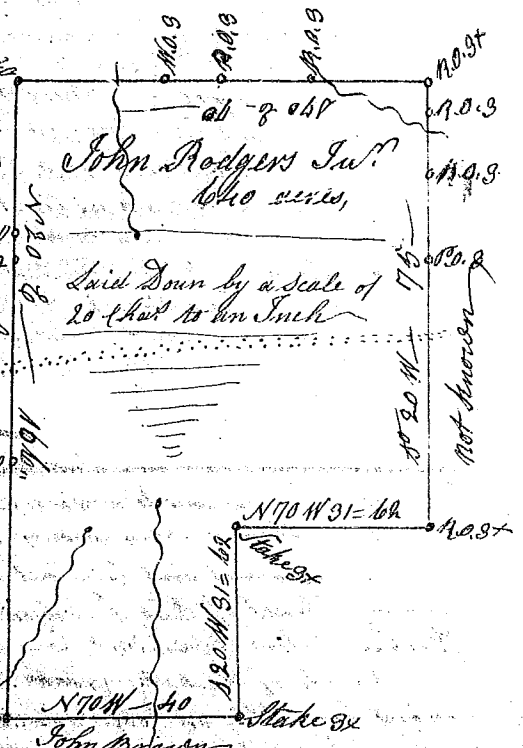 W.O.3
R.O.3
R.O.3
R.O.3x
R.O.3
R.O.3
John Rodgers Junr
640 acres,
N 20 E
Laid Down by a scale of
20 Chas to an Inch
P.O.3
So 20 W — 75
Not Known
N 70 W 31=62
R.O.3x
Stake 3x
S 20 W 31=62
N 70 W — 40
Stake 3x
John